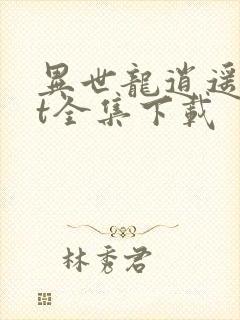 異世龍逍遥
t全集下載
林秀君